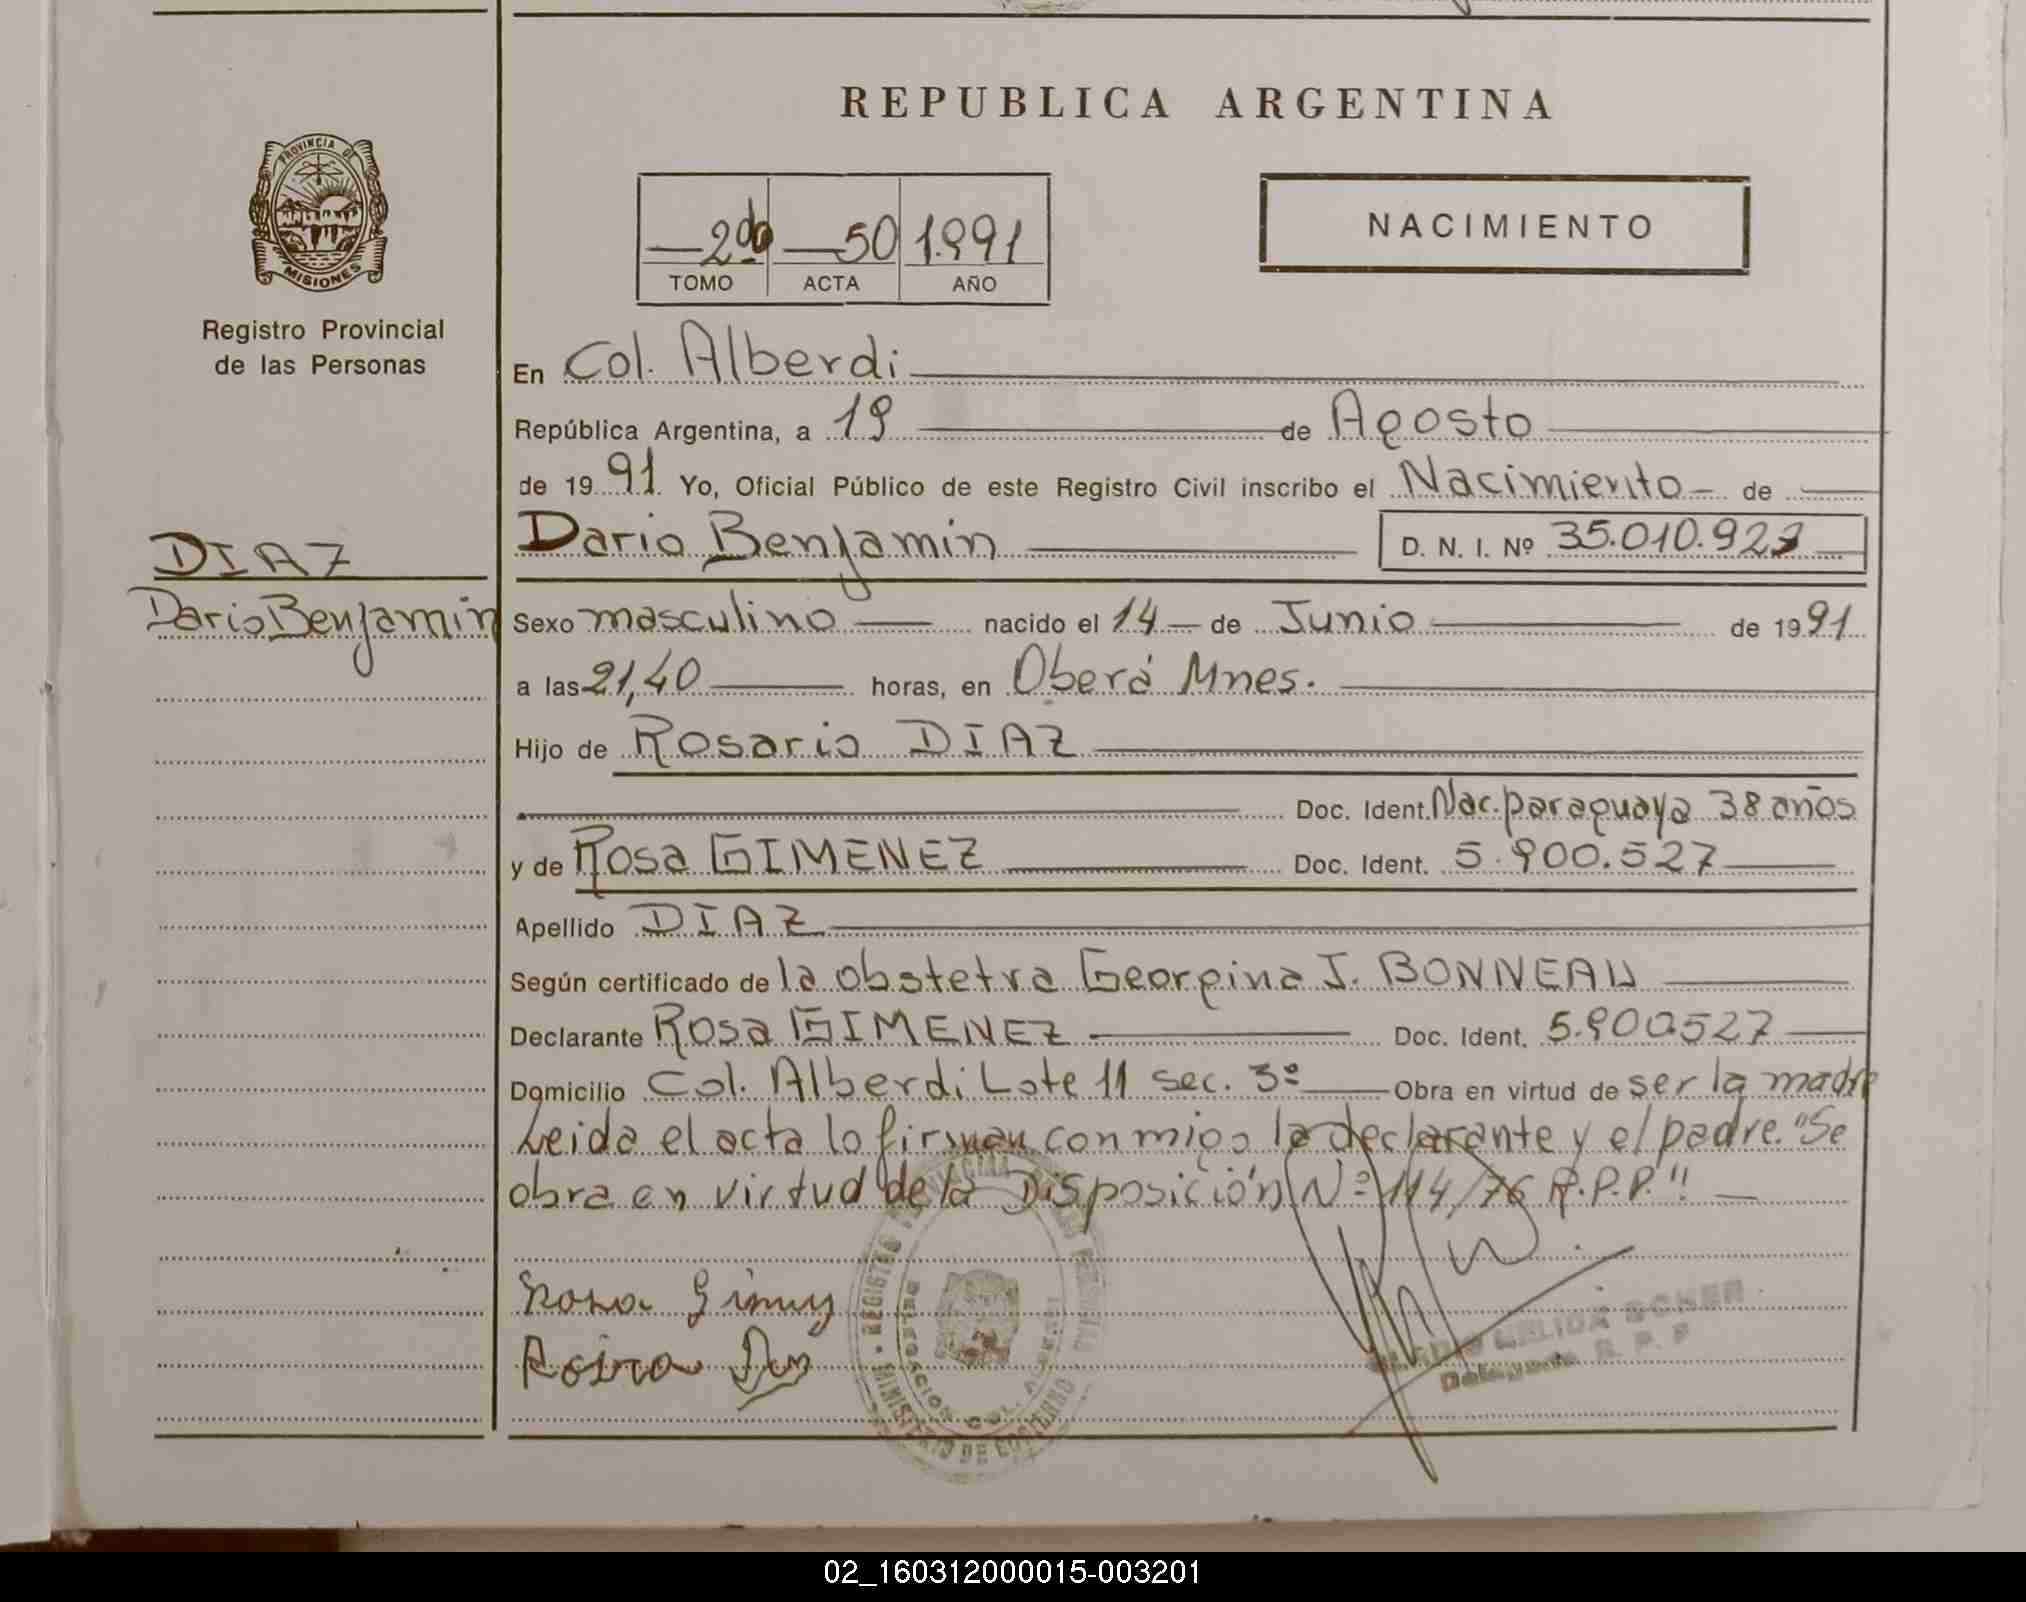 REPUBLICA ARGENTINA
PROVINCIA DE
MISIONES
Registro Provincial
de las Personas
2do 50 1.991
TOMO ACTA AÑO
NACIMIENTO
En Col. Alberdi
República Argentina, a 19 de Agosto
de 1991. Yo, Oficial Público de este Registro Civil inscribo el Nacimiento de
Dario Benjamin D. N. I. Nº
DIAZ
Dario Benjamin
Sexo masculino nacido el 14 de Junio de 1991
a las 21,40 horas, en Oberá Mnes.
Hijo de Rosario DIAZ
Doc. Ident. Nac. paraguaya 38 años
y de Rosa GIMENEZ Doc. Ident. 5.900.527
Apellido DIAZ
Según certificado de la obstetra Georgina J. BONNEAU
Declarante Rosa GIMENEZ Doc. Ident. 5.900.527
Domicilio Col. Alberdi Lote 11 sec. 3º Obra en virtud de ser la madre
Leida el acta lo firman conmigo la declarante y el padre. "Se
obra en virtud de la Disposición Nº 114/76 R.P.P."
Delegada R. P. P.
02_160312000015-003201